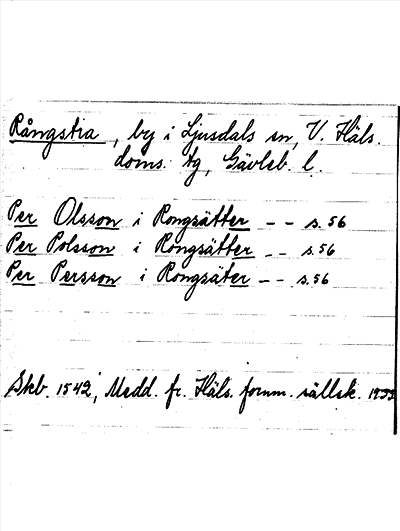 Rångstia, by i Ljusdals sn, V. Häls.
doms. tg, Gävleb. l.
Per Olsson i Rongsätter -- s. 56
Per Polsson i Rongsätter -- s. 56
Per Persson i Rongsäter -- s. 56
Skb. 1542, Medd. fr. Häls. fornm. sällsk.